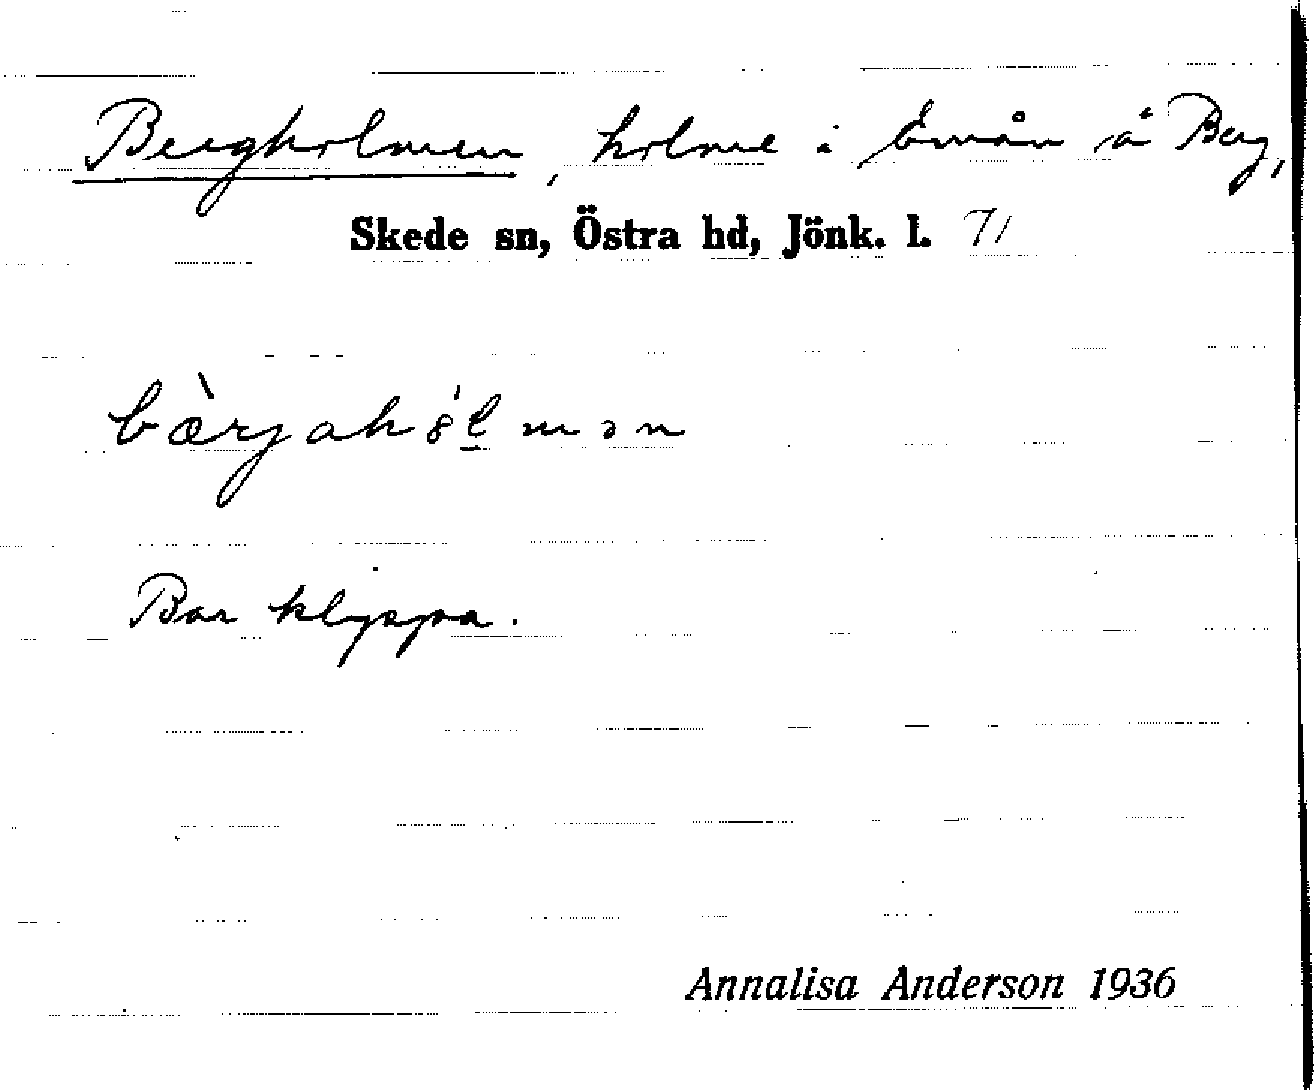 Bergholmen, holme i Emån å Berg,
Skede sn, Östra hd, Jönk. l. 71
bærjahólmən
Bar klippa.
Annalisa Anderson 1936